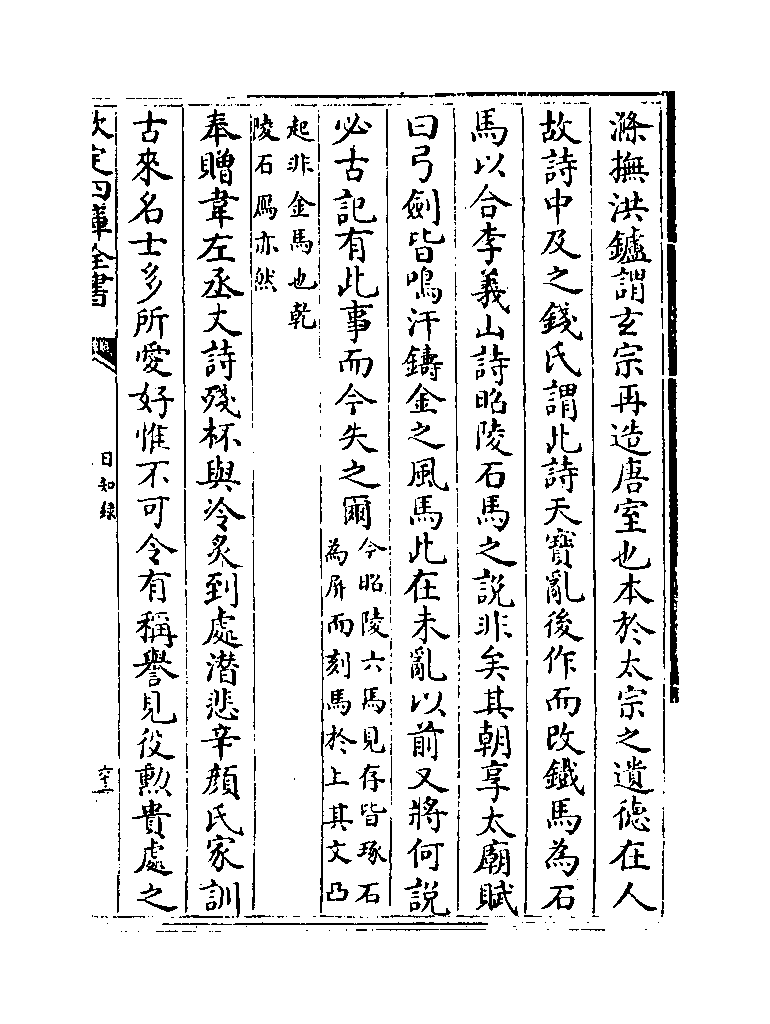 滌撫洪鑪謂玄宗再造唐室也本於太宗之遺德在人
故詩中及之錢氏謂此詩天寶亂後作而改鐵馬為石
馬以合李義山詩昭陵石馬之說非矣其朝享太廟賦
曰弓劍皆鳴汗鑄金之風馬此在未亂以前又將何說
必古記有此事而今失之爾今昭陵六馬見存皆琢石
為屏而刻馬於上其文凸
起非金馬也乾
陵石馬亦然
奉贈韋左丞丈詩殘杯與冷炙到處潛悲辛顏氏家訓
古來名士多所愛好惟不可令有稱譽見役勲貴處之
欽定四庫全書
日知錄